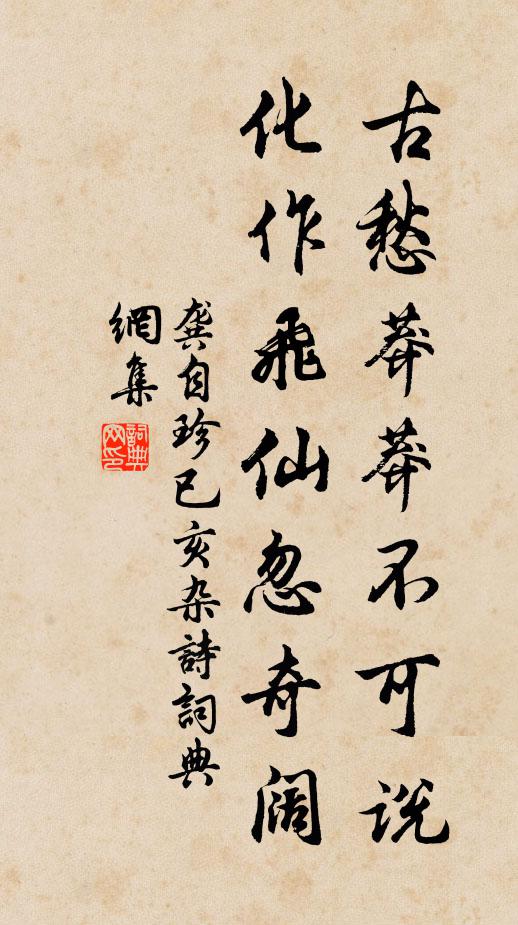 古愁莽莽不可説
化作飛仙忽奇闊
龔自珍己亥杂詩詞典
網集
詞典网印